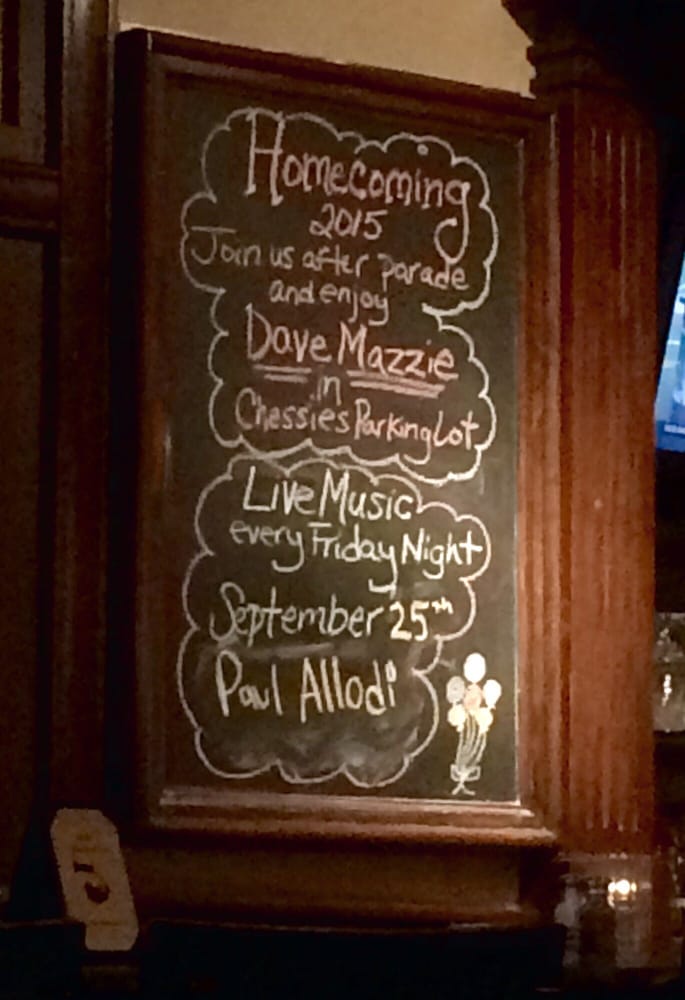 Homecoming
2015
Join us after parade
and enjoy
Dave Mazzie
in
Chessies Parking Lot
Live Music
every Friday Night
September 25th
Paul Allodi
5